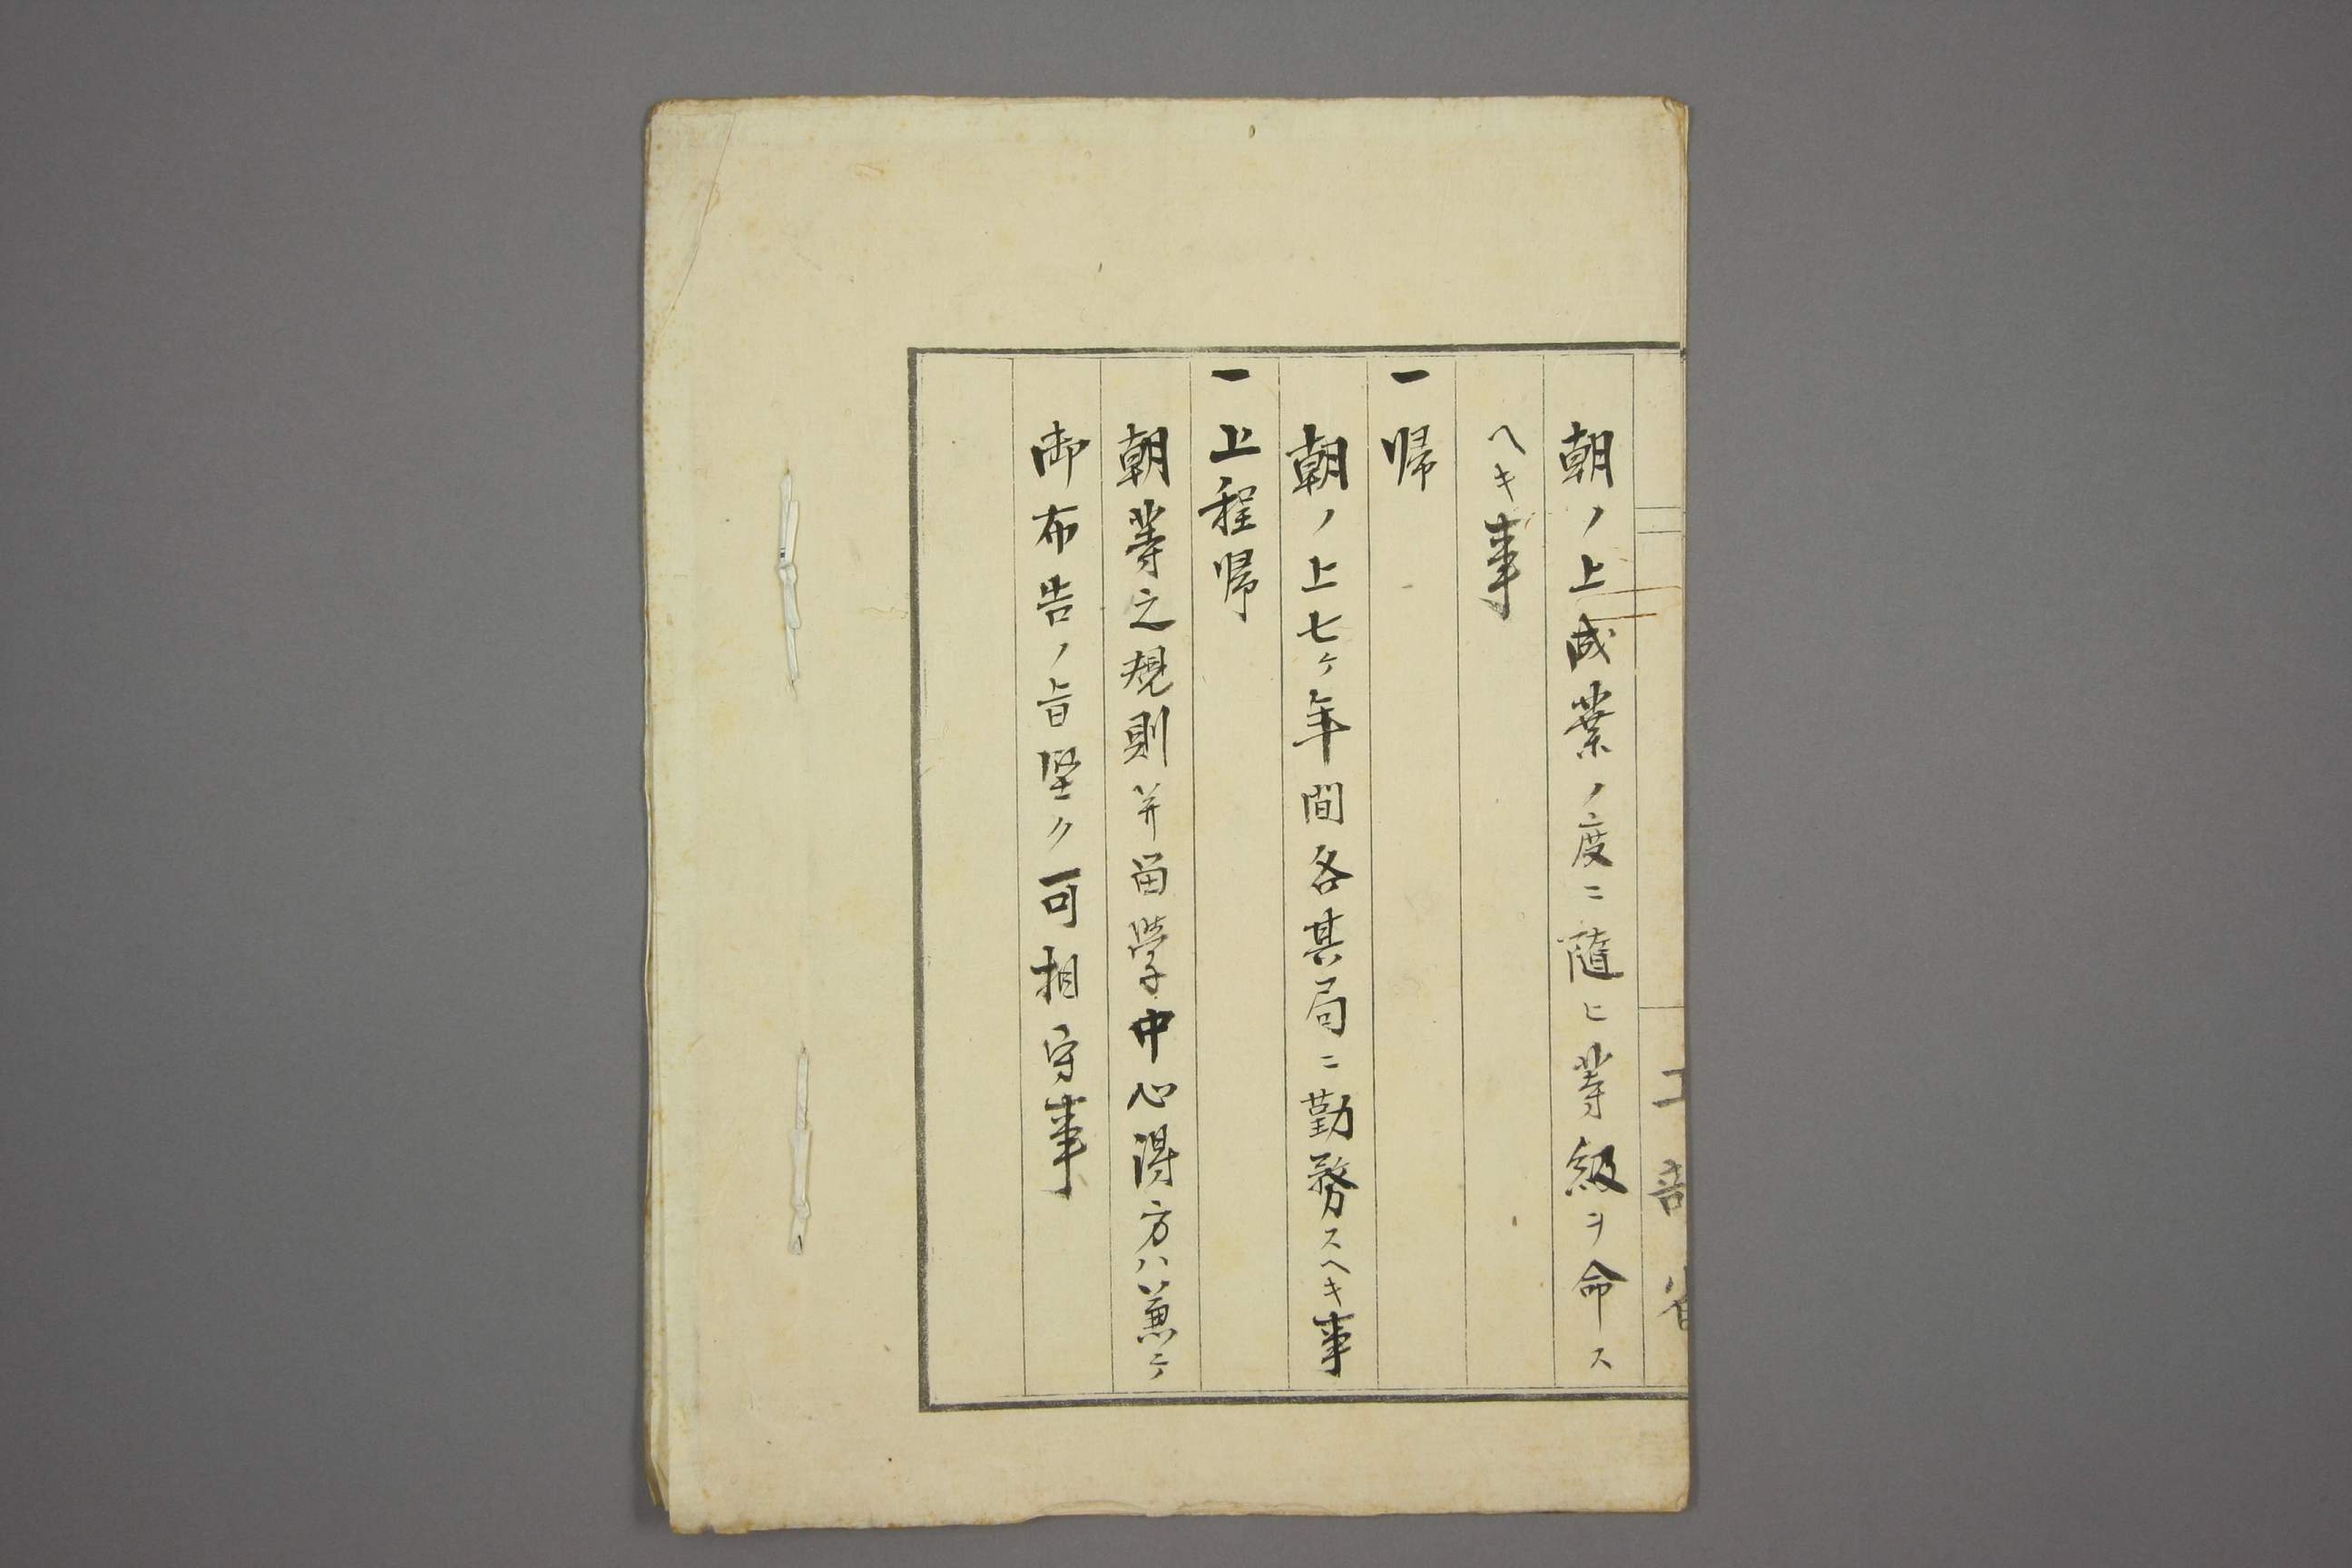 工部省
朝ノ上成業ノ度ニ隨ヒ等級ヲ命ス
ヘキ事
一帰
朝ノ上七ケ年間各其局ニ勤務スヘキ事
一上程帰
朝等之規則并留學中心得方ハ兼テ
御布告ノ旨堅ク可相守事